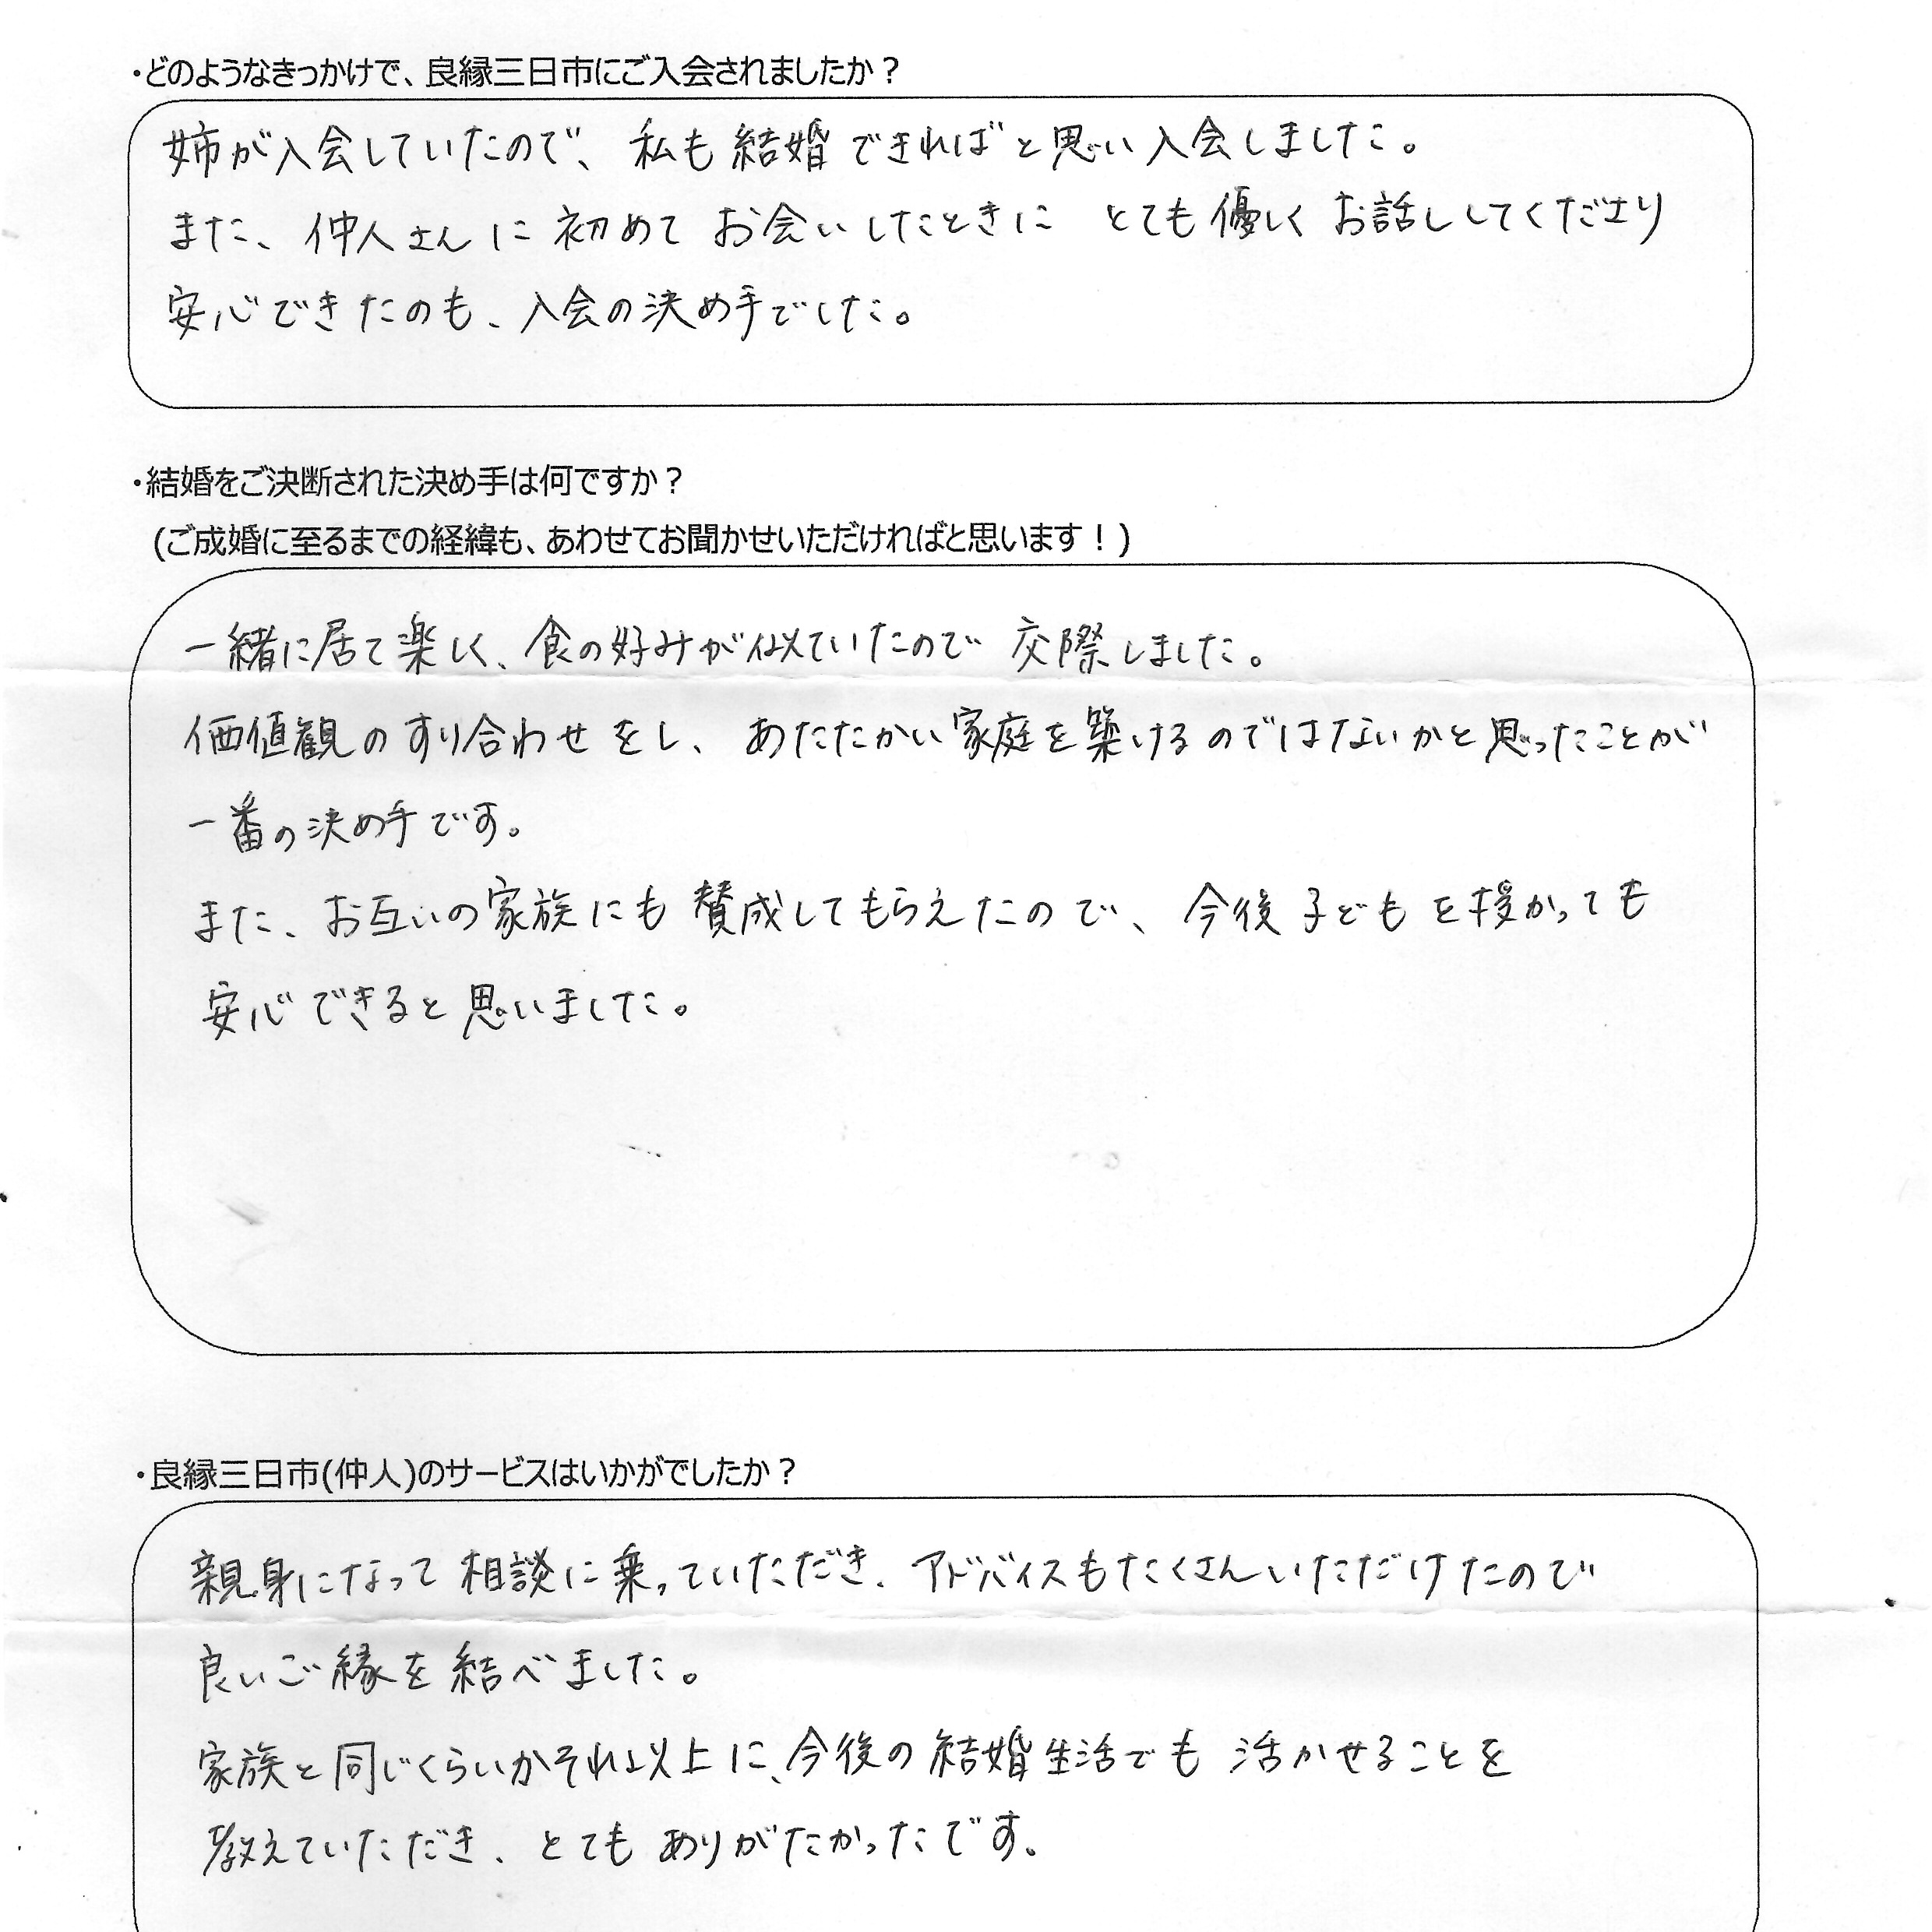 ・どのようなきっかけで、良縁三日市にご入会されましたか？
姉が入会していたので、私も結婚できればと思い入会しました。
また、仲人さんに初めてお会いしたときに とても優しくお話ししてくださり
安心できたのも、入会の決め手でした。
・結婚をご決断された決め手は何ですか？
(ご成婚に至るまでの経緯も、あわせてお聞かせいただければと思います！)
一緒に居て楽しく、食の好みが似ていたので交際しました。
価値観のすり合わせをし、あたたかい家庭を築けるのではないかと思ったことが
一番の決め手です。
また、お互いの家族にも賛成してもらえたので、今後子どもを授かっても
安心できると思いました。
・良縁三日市(仲人)のサービスはいかがでしたか？
親身になって相談に乗っていただき、アドバイスもたくさんいただけたので
良いご縁を結べました。
家族と同じくらいかそれ以上に、今後の結婚生活でも活かせることを
教えていただき、とてもありがたかったです。